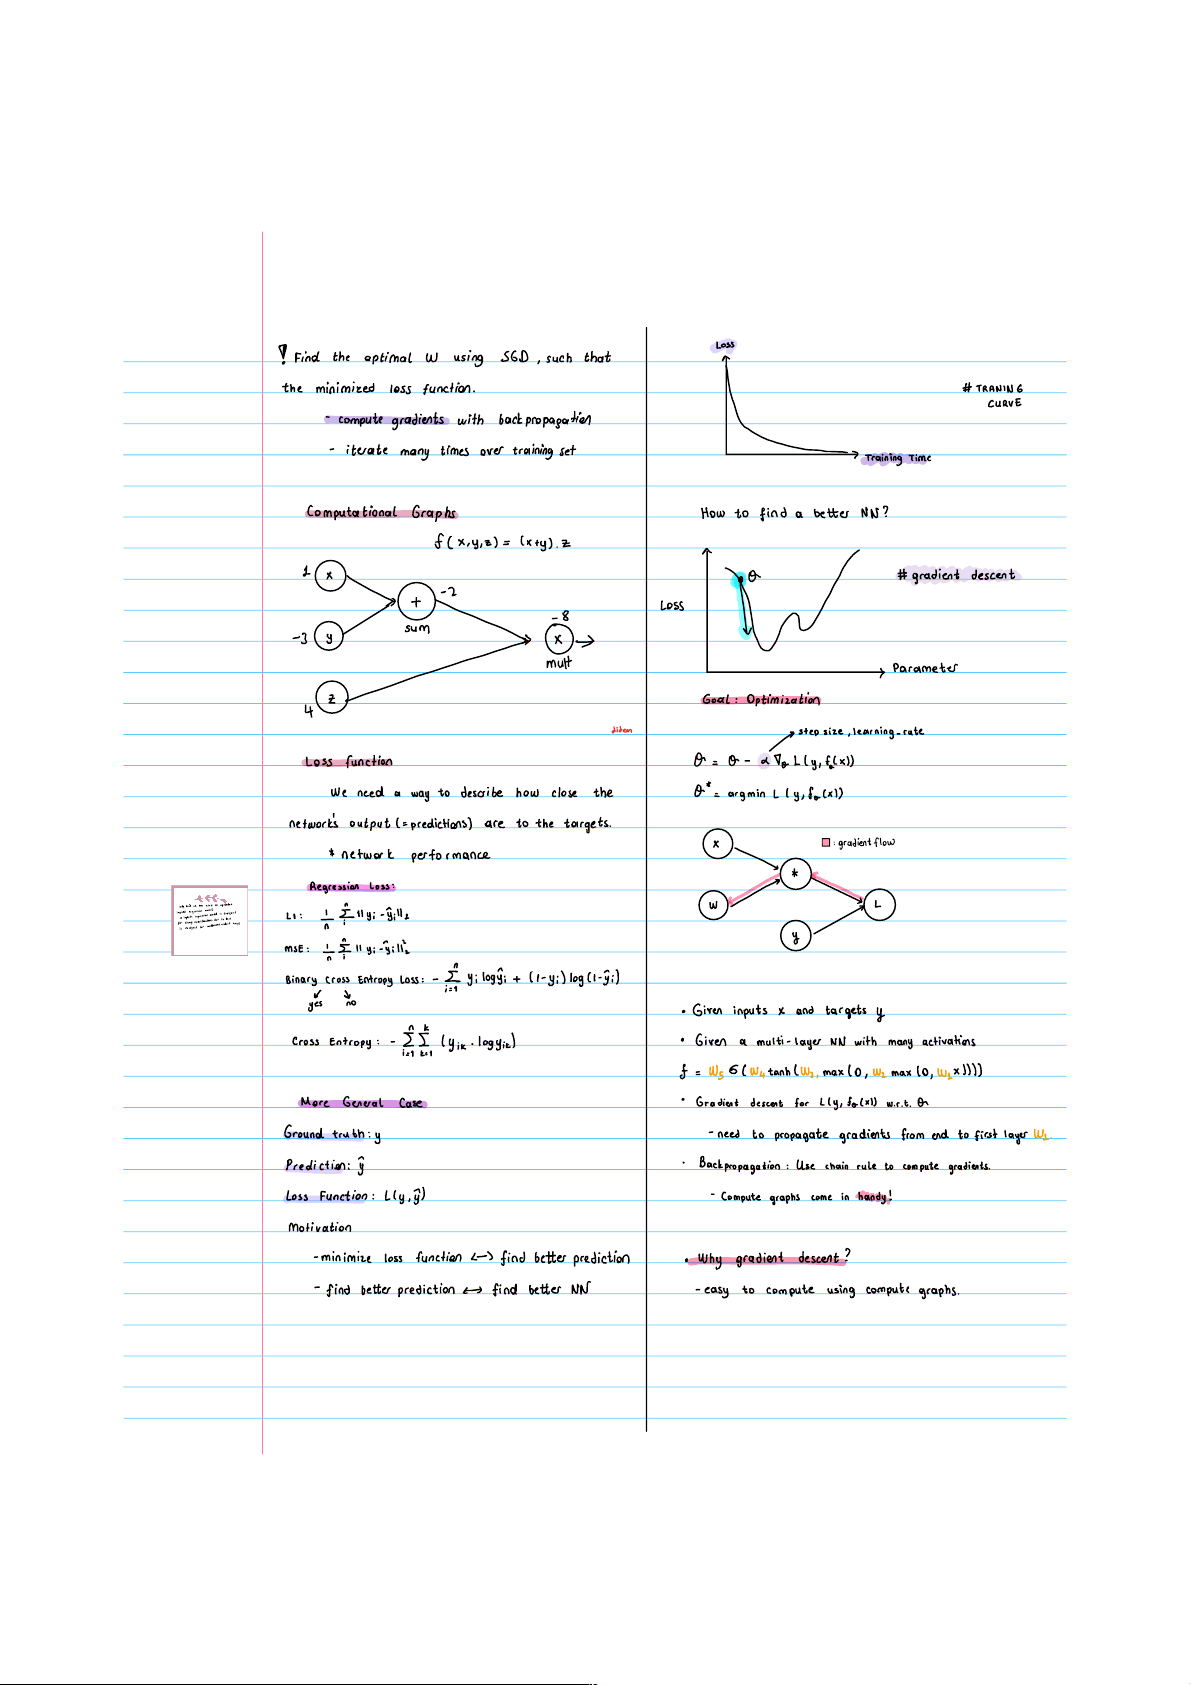 ! Find the optimal W using SGD, such that
the minimized loss function.
- compute gradients with backpropagation
- iterate many times over training set
Computational Graphs
f(x,y,z) = (x+y).z
1 x
+ -2
sum
-3 y
-8
x
mult
z
4
dilan
Loss function
We need a way to describe how close the
network's output (=predictions) are to the targets.
* network performance
Regression Loss:
L1: 1/n Σ_i^n ||yi - ŷi||₂
MSE: 1/n Σ_i^n ||yi - ŷi||₂²
Binary Cross Entropy Loss: - Σ_{i=1}^n yi logŷi + (1-yi) log(1-ŷi)
yes no
Cross Entropy: - Σ_{i=1}^n Σ_{k=1}^k (yik . logŷik)
More General Case
Ground truth: y
Prediction: ŷ
Loss Function: L(y,ŷ)
Motivation
- minimize loss function <-> find better prediction
- find better prediction <-> find better NN
Loss
# TRANING
CURVE
Training Time
How to find a better NN?
θ
# gradient descent
Loss
Parameter
Goal: Optimization
step size, learning-rate
θ = θ - α ∇θ L(y, fθ(x))
θ* = argmin L(y, fθ(x))
x
: gradient flow
*
W
L
y
• Given inputs x and targets y
• Given a multi-layer NN with many activations
f = W5 σ(W4 tanh(W3, max(0, W2 max(0, W1 x))))
• Gradient descent for L(y, fθ(x)) w.r.t. θ
- need to propagate gradients from end to first layer W1
• Backpropagation: Use chain rule to compute gradients.
- Compute graphs come in handy!
• Why gradient descent?
- easy to compute using compute graphs.